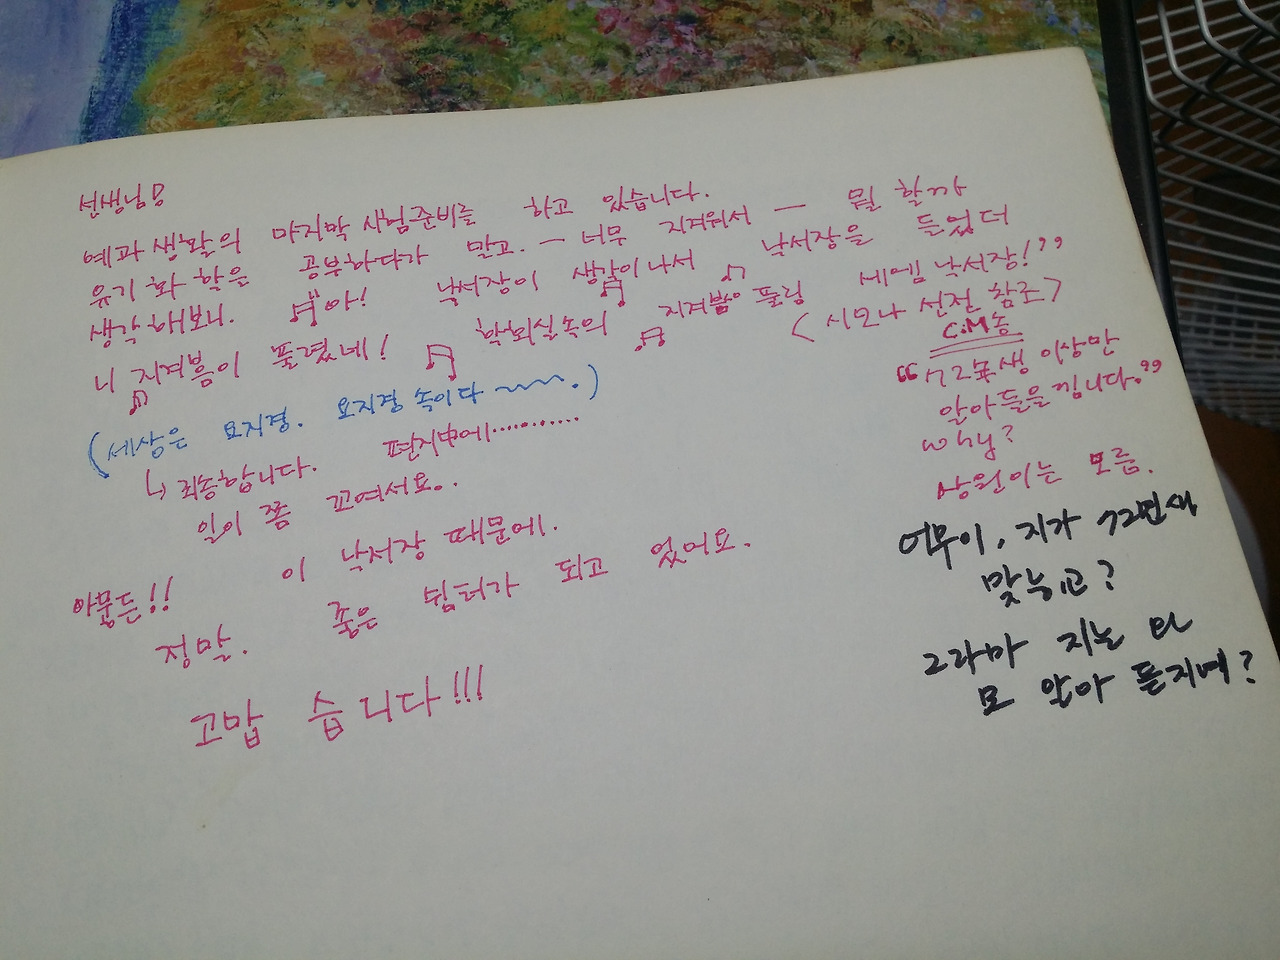 선생님!
예과 생활의 마지막 시험준비를 하고 있습니다.
유기 화학을 공부하다가 말고. — 너무 지겨워서 — 뭘 할까
생각해보니. 낙서장이 생각이 나서 낙서장을 들었더
니 지겨움이 풀렸네! 학회실속의 지겨움이 풀링 세에멤 낙서장!”
(시모나 선전 참조)
C.M송
(세상은 요지경. 요지경 속이다 ~~~.)
↳ 죄송합니다. 편지中에…………
일이 쫌 꼬여서요..
아뭏든!! 이 낙서장 때문에.
정말. 좋은 쉼터가 되고 있어요.
고맙습니다!!!
“72年생 이상만
알아들을낍니다.”
why?
상원이는 모름.
어무이, 지가 72년새
맞능교?
그라마 지는 와
모 알아 듣지예?